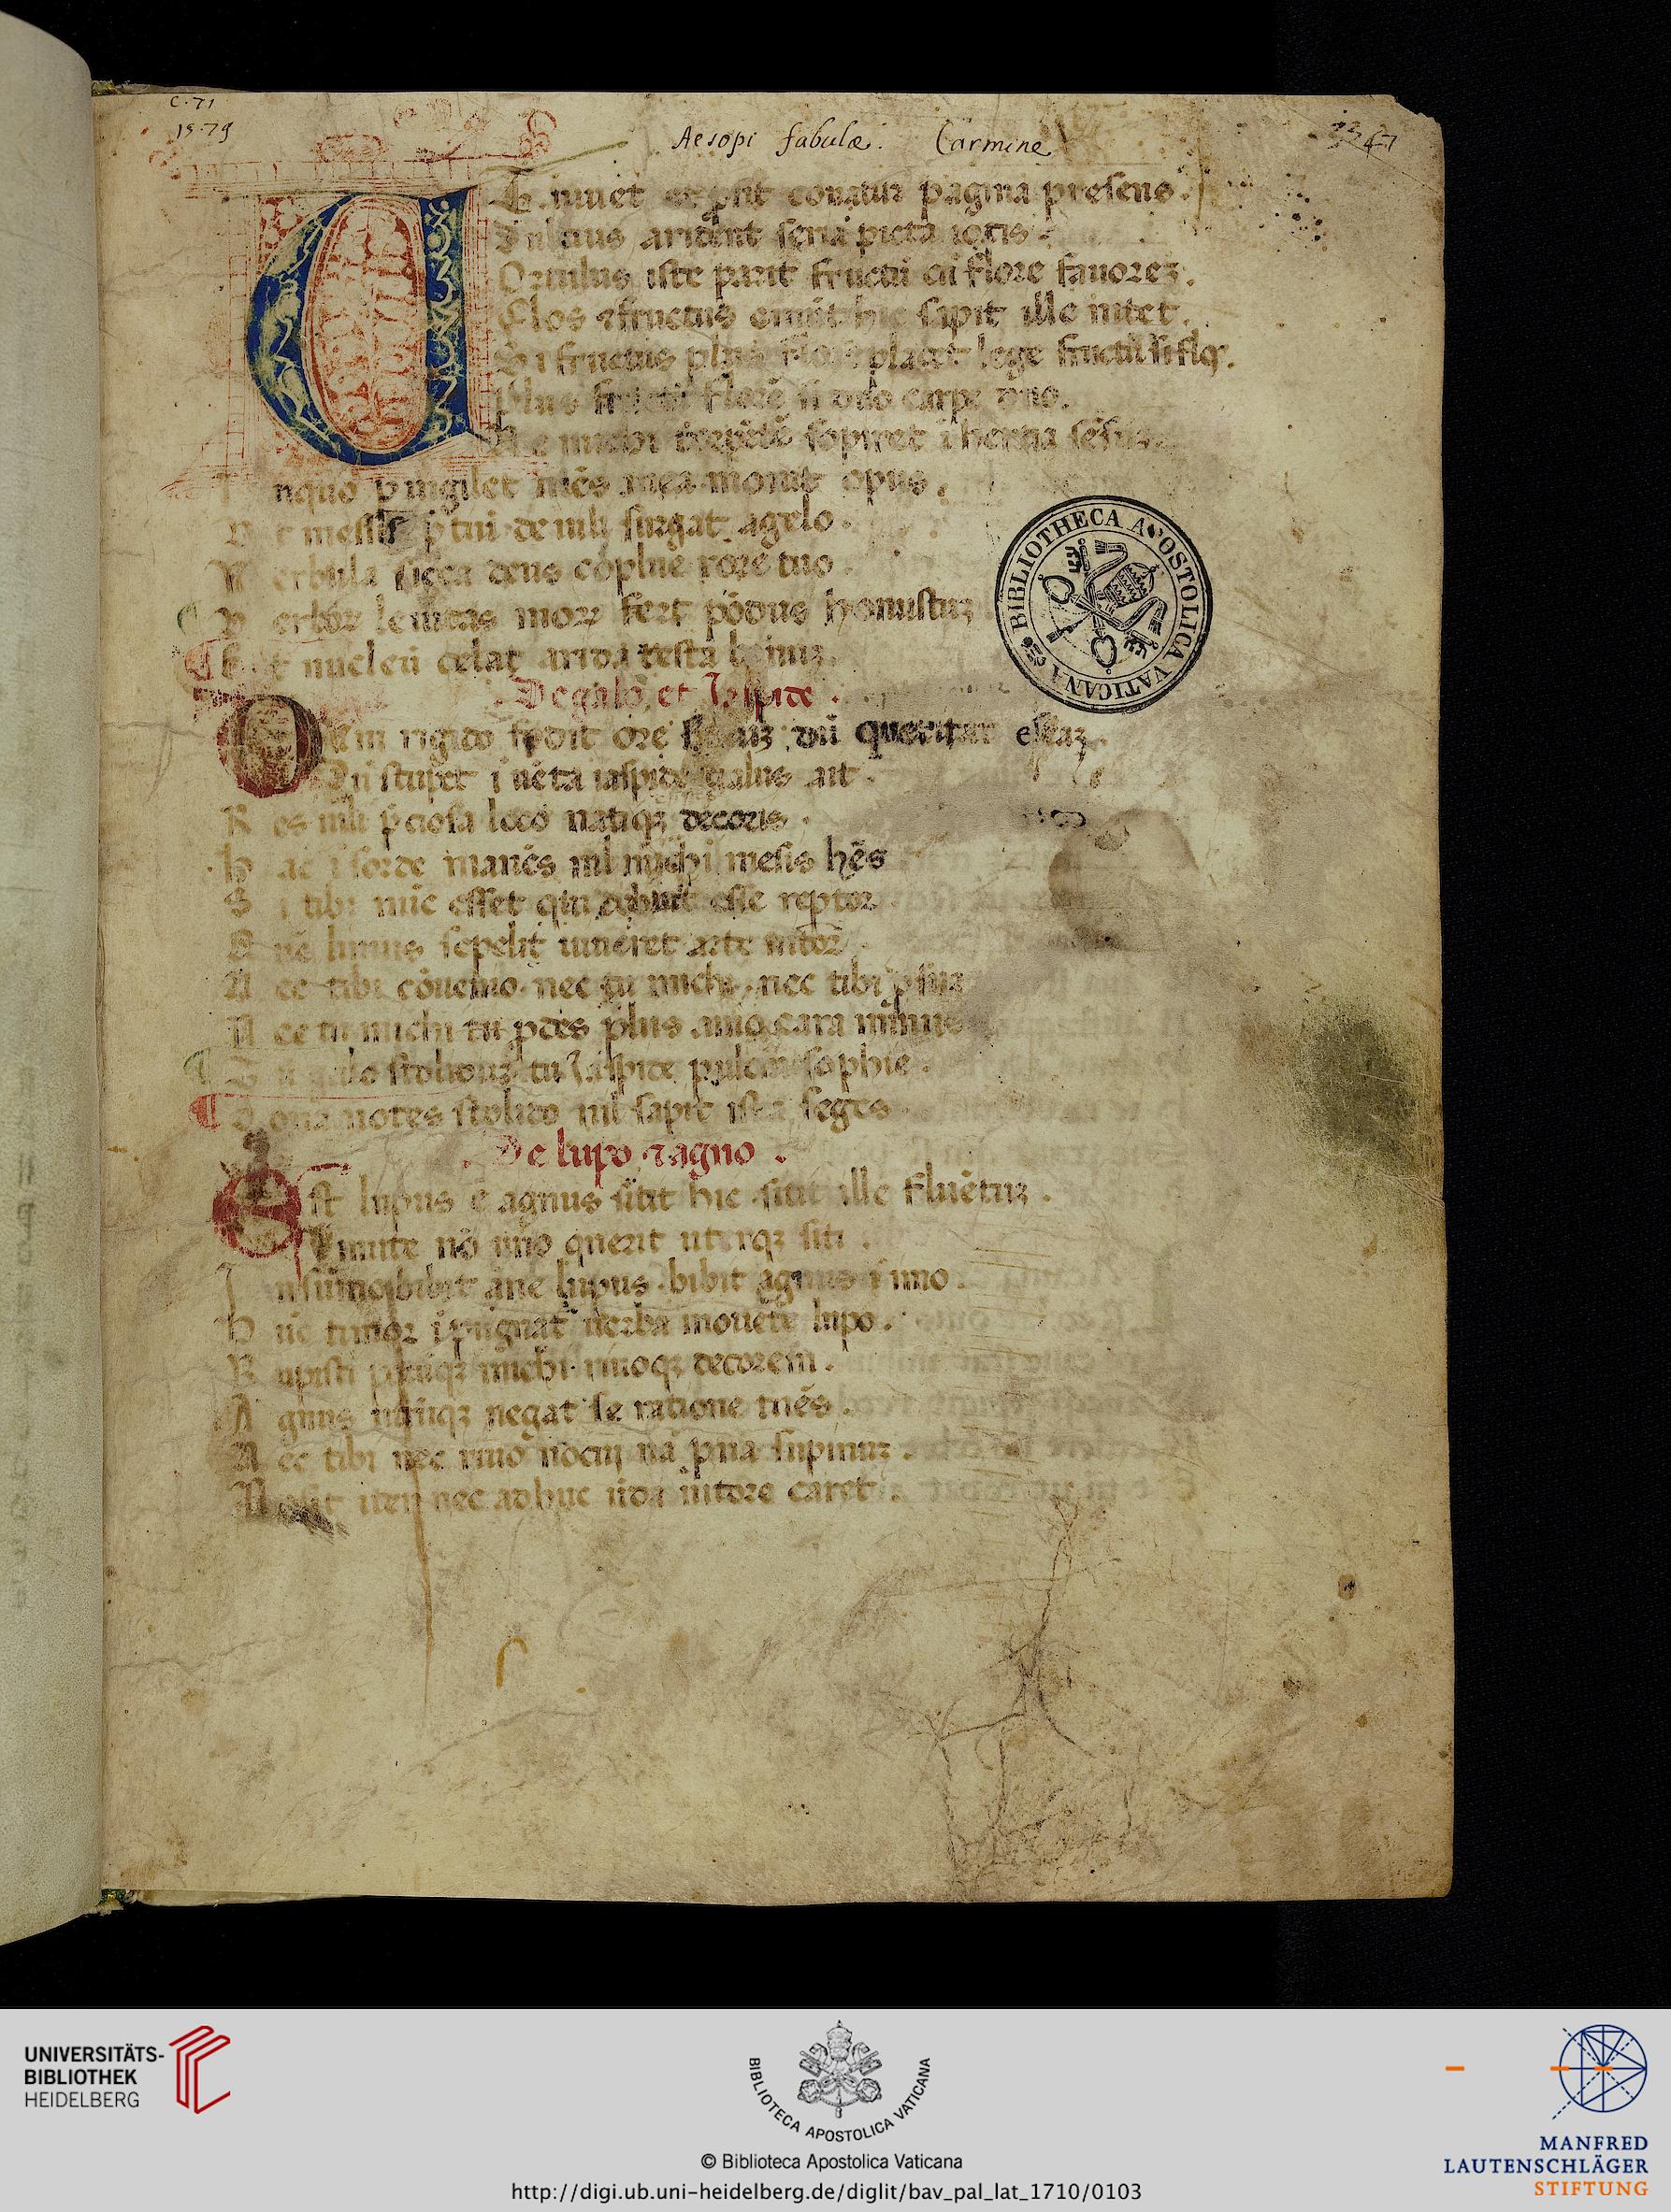 c. 71
1579
Aesopi fabulæ. Carmine
Ut iuuet et ꝓsit conatur pagina presens.
Dulcius arident seria picta iocis.
Ortulus iste parit fructū cū flore fauorez.
Flos ⁊ fructus emūt hic sapit ille nitet.
Si fructus plus flore placet lege fructū si flos
Plus fructu florē si duo carpe duo.
Ne michi torpētē sopiret ihertia sēsus
In quo ꝑuigilet mēs mea mouit opus.
Ut messis p̄tiū de uili surgat agello.
Verbula sicca deus cōplue rore tuo.
Verboꝝ leuitas moꝝ fert pōdus honustuz
Et nucleū celat arida testa bonuz.
De galo et Iaspide.
Dum rigido fodit ore fimuz dū queritur escaz.
Dū stupet i uēta iaspide galus ait.
Res uili p̄ciosa loco natiqꝫ decoris.
Hac i sorde manēs nil michi mesis hēs
Si tibi nūc esset qui debuit esse reptor
Quē limus sepelit uiueret arte nitor.
Nec tibi cōuenio nec tu michi nec tibi ꝓsuz
Nec tu michi tu ꝓdes plus amo cara minus
Tu galo stoliduz tu Iaspide pulcra sophie.
Dona notes stolido nil sapit ista seges
De lupo ⁊ agno.
Est lupus ē agnus sitit hic sitit ille fluētuz.
Limite nō uno querit uterqꝫ siti.
In sūmo bibit āne lupus bibit agnus i imo.
Hūc timor ipugnat uerba mouēte lupo.
Rupisti potūqꝫ michi riuoqꝫ decorem.
Agnus utrūqꝫ negat se ratione tuēs.
Nec tibi nec riuo nocui nā prona supinuz.
Nescit iter nec adhuc ūda nitore caret.
BIBLIOTHECA APOSTOLICA VATICANA
UNIVERSITÄTS-
BIBLIOTHEK
HEIDELBERG
BIBLIOTECA APOSTOLICA VATICANA
© Biblioteca Apostolica Vaticana
http://digi.ub.uni-heidelberg.de/diglit/bav_pal_lat_1710/0103
MANFRED
LAUTENSCHLÄGER
STIFTUNG